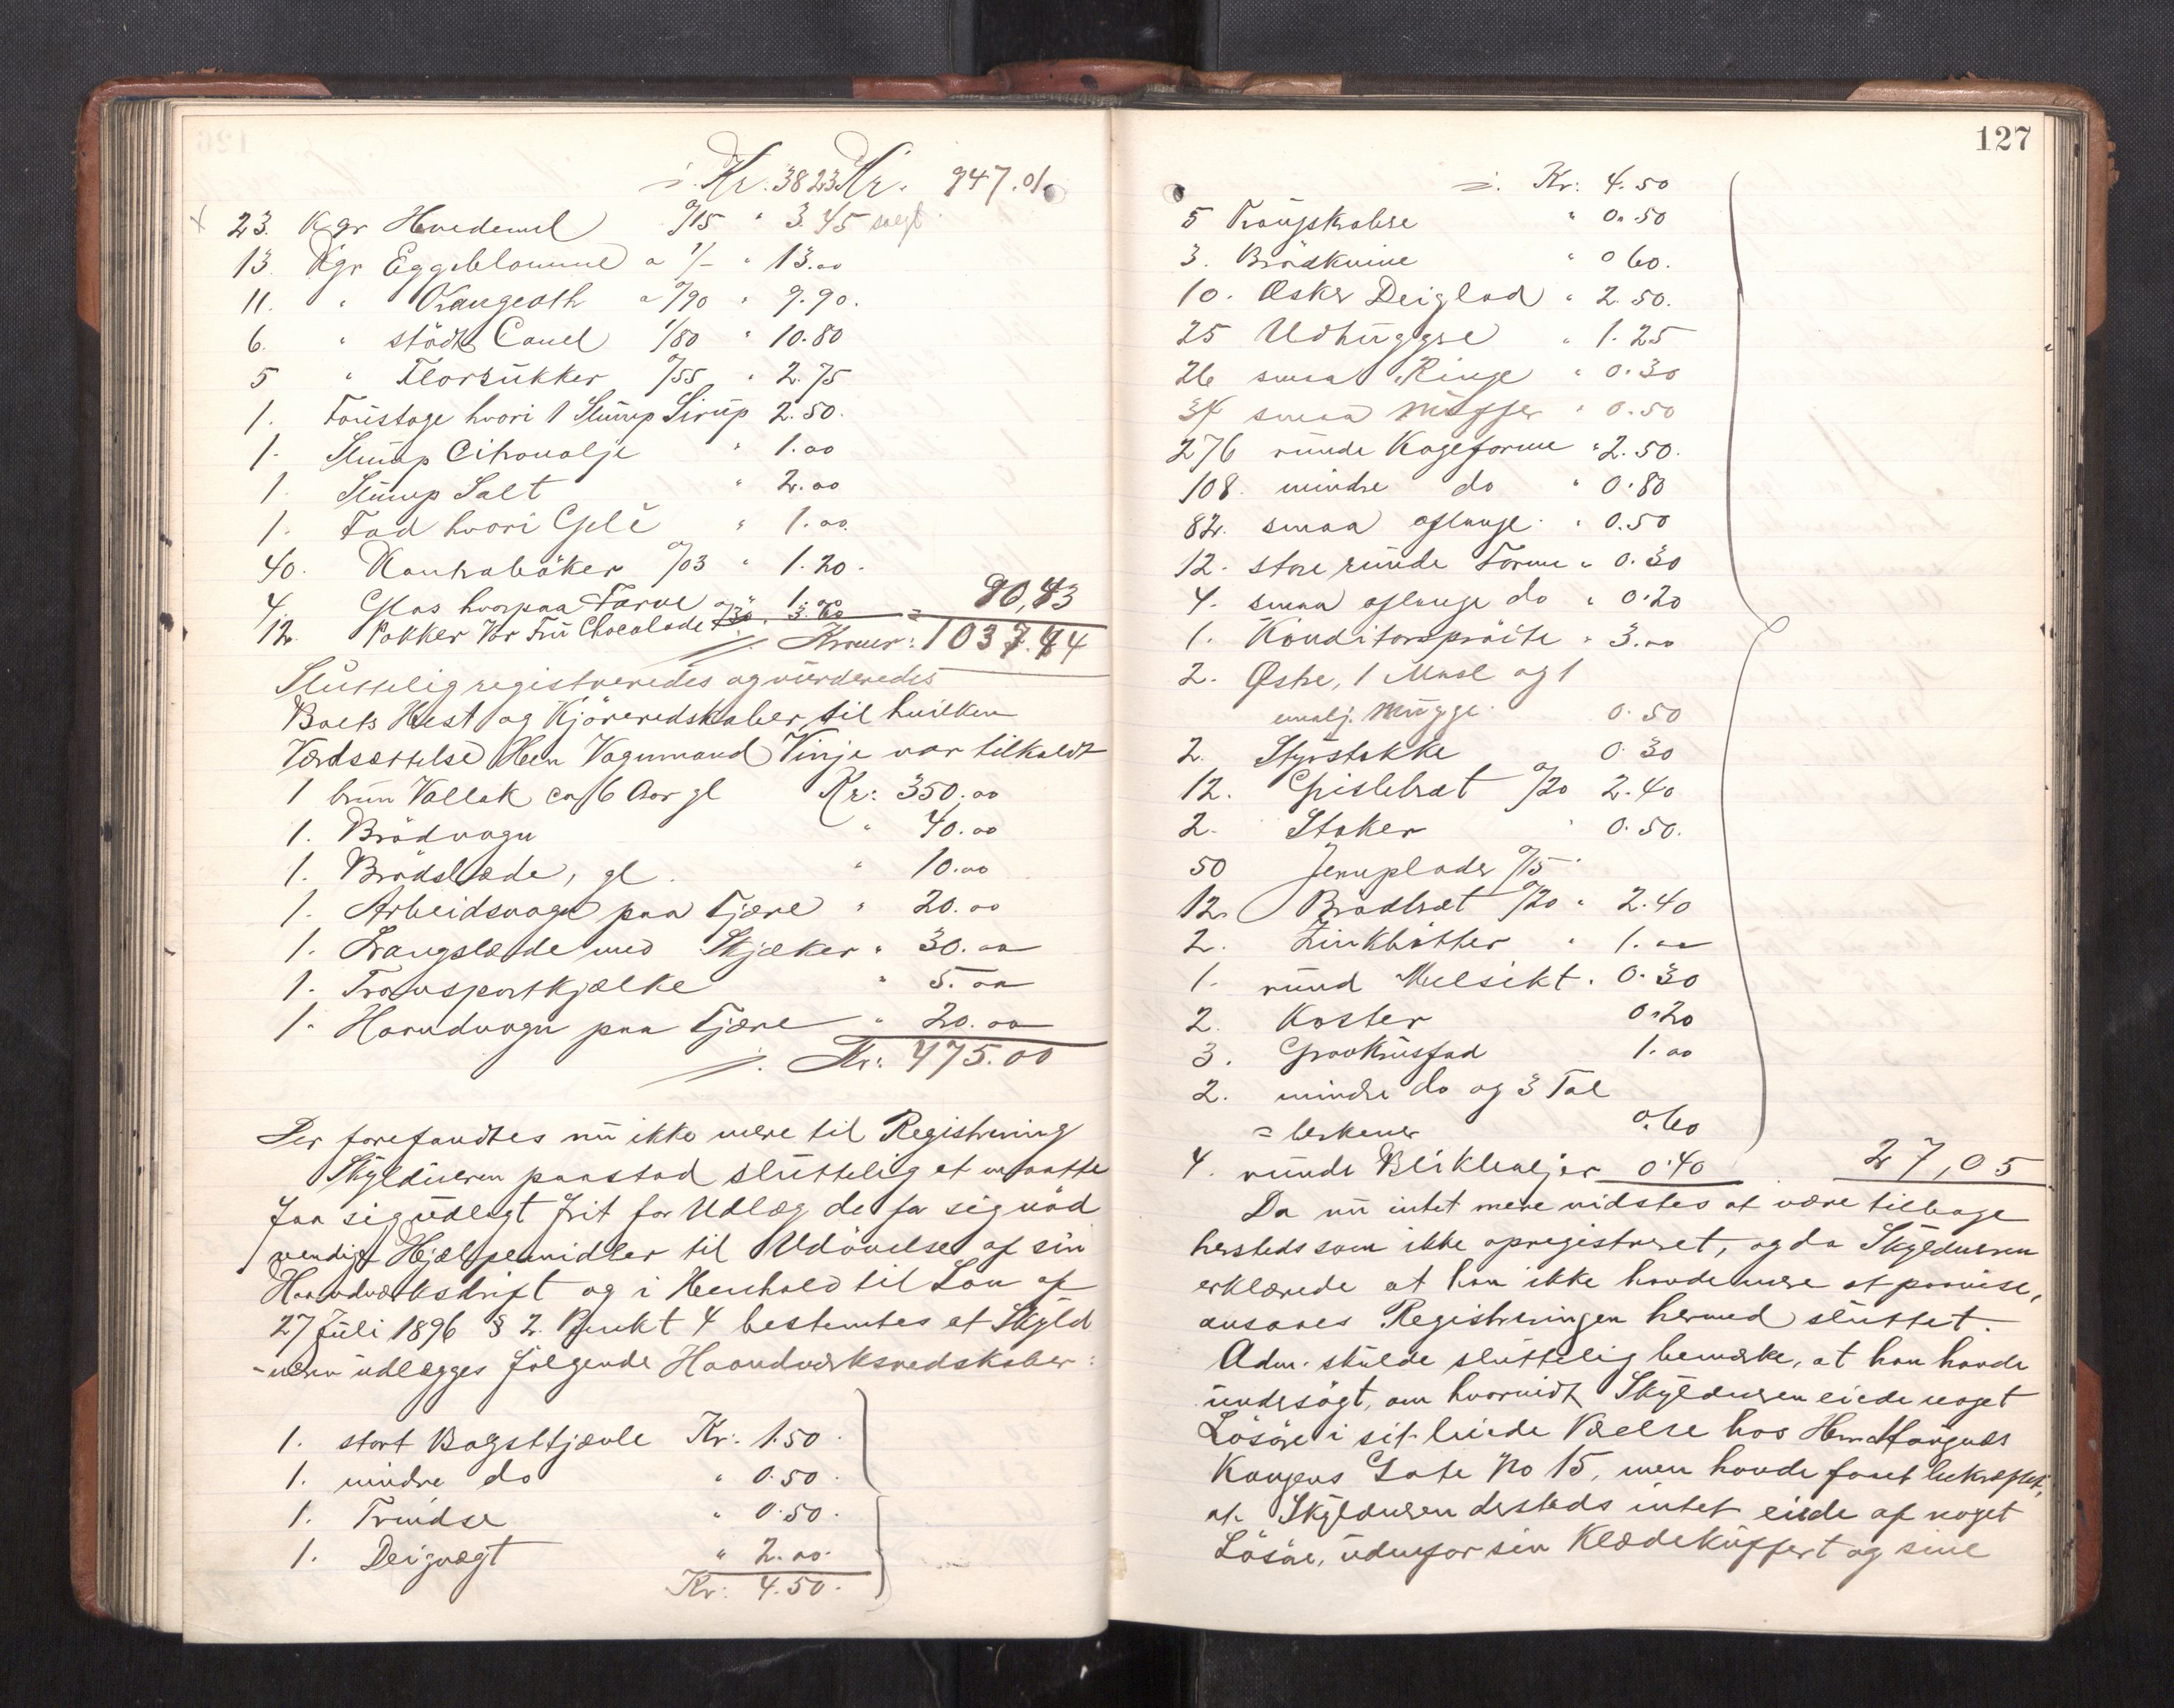 ./. Kr. 38 23 Kr. 947.01
× 23. Kgr Hvedemel 0/15 " 3.45 solgt
13. Kgr Eggeblomme a 1/- " 13.00
11. " a 0/90 " 9.90.
6. " stödt Canel 1/80 " 10.80
5 " Florsukker 0/55 " 2.75
1. Foustage hvori 1 Slump Sirup 2.50.
1. Slump Citronolje " 1.00
1. Slump Salt " 2.00
1. Fad hvori Gelé " 1.00
40. Kontraböker 0/03 " 1.20.
4. Glas hvorpaa Farve " 1.00
12. Pakker Vor Fru Chocolade 3.60
= 90,43
./. Kroner: 1037.44
Sluttelig registreredes og vurderedes
Boets Hest og Kjöreredskaber, til hvilken
Værdsættelse Herr Vognmand Vinje var tilkaldt
1 brun Vallak ca 16 Aar gl Kr: 350.00
1. Brödvogn " 40.00
1. Brödslæde, gl. " 10.00
1. Arbeidsvogn paa Fjære " 20.00
1. Langslæde med Skjæker " 30.00
1. Transportkjælke " 5.00
1. Haandvogn paa Fjære " 20.00
./. Kr: 475.00
Der forefandtes nu ikke mere til Registrering
Skyldneren paastod sluttelig at maatte
faa sig udlagt frit for Udlæg de for sig nöd
vendige Hjælpemidler til Udövelse af sin
Haandværksdrift og i Henhold til Lov af
27 Juli 1896 § 2. Punkt 4 bestemtes at Skyld
-neren udlægges fölgende Haandværksredskaber:
1. stort Bagsttjævle Kr: 1.50.
1. mindre do " 0.50.
1. Trindse " 0.50.
1. Deigvægt " 2.00.
Kr: 4.50.
127
./. Kr: 4.50
5 Traugskabere " 0.50
3. Brödknive " 0 60.
10. Æsker Deiglod " 2.50.
25 Udhuggere " 1.25
26 smaa Ringe " 0.30
34 smaa Muffer " 0.50
276 runde Kageforme " 2.50.
108. mindre do " 0.80
82. smaa aflange " 0.50
12. store runde Forme " 0.30
4. smaa aflange do " 0.20
1. Konditorspröite " 3.00
2. Østre, 1 Maal og 1
emalj. Mugge. 0.50
2. Styrstokke 0.30
12. Gislebræt 0/20 2.40
2. Stoker " 0.50.
50 Jernplader 0/15
12. Brödbræt 0/20 " 2.40
2. Zinkbötter " 1.00
1. rund Melsikt " 0.30
2. Koster 0.20
3. Graakrusfad 1.00
2. mindre do og 3 Tal
= lerkener 0.60
4. runde Blikbaljer 0.40 27,05
Da nu intet mere vidstes at være tilbage
hersteds som ikke opregistreret, og da Skyldneren
erklærede at han ikke havde mere at paavise,
ansaaes Registreringen hermed sluttet.
Adm. skulde sluttelig bemærke, at han havde
undersögt, om hvorvidt Skyldneren eiede noget
Lösöre i sit leiede Værelse hos Herr
Kongens Gate No 15, men havde faaet bekræftet,
at Skyldneren dersteds intet eiede af noget
Lösöre, udenfor sin Klædekuffert og sine